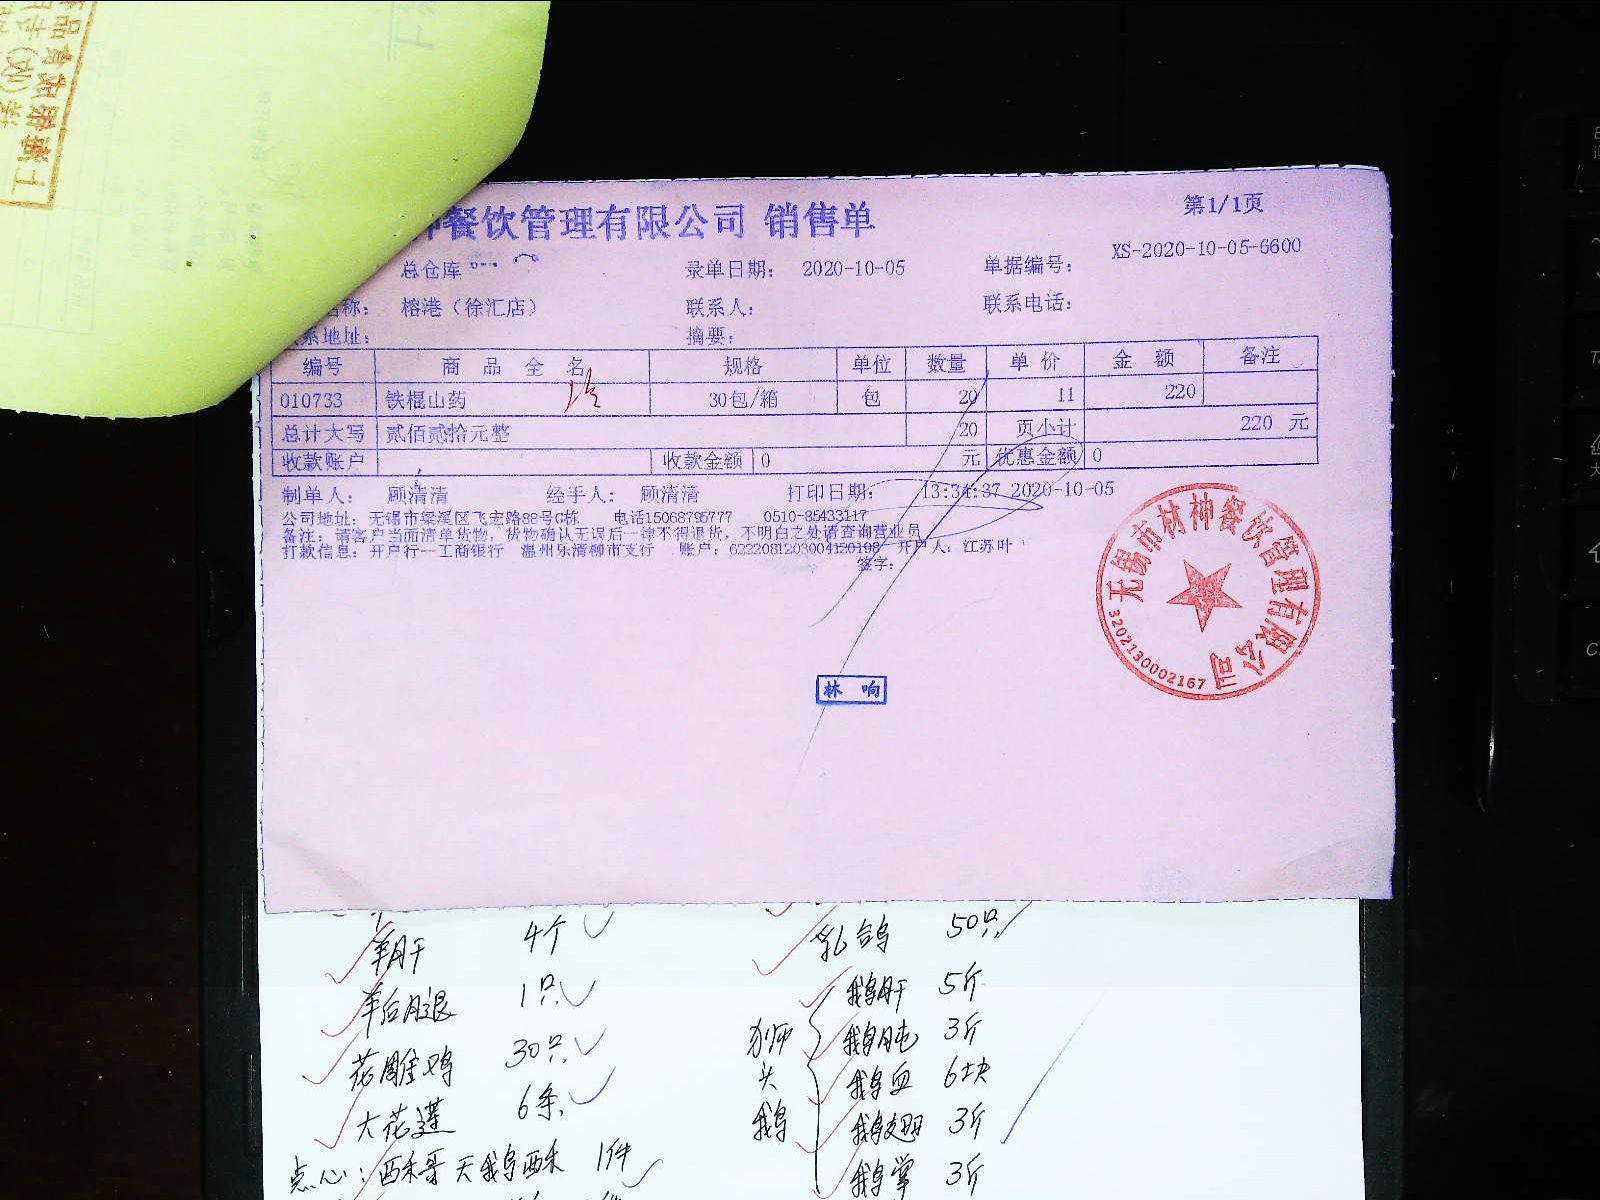 餐饮管理有限公司 销售单
第1/1页
总仓库
录单日期： 2020-10-05
单据编号： XS-2020-10-05-6600
名称： 榕港（徐汇店）
联系人：
联系电话：
系地址：
摘要：
编号 商品全名 规格 单位 数量 单价 金额 备注
010733 铁棍山药 30包/箱 包 20 11 220
总计大写 贰佰贰拾元整 20 页小计 220 元
收款账户 收款金额 0 元 优惠金额 0
制单人： 顾清清 经手人： 顾清清 打印日期： 13:34:37 2020-10-05
公司地址：无锡市梁溪区飞宏路88号G栋 电话15068795777 0510-85433117
备注：请客户当面清单货物，货物确认无误后一律不得退货，不明白之处请查询营业员
打款信息：开户行--工商银行 温州乐清柳市支行 .账户：6222081203004120198 开户人：江苏叶
签字：
无锡市材神餐饮管理有限公司
3202130002167
林 响
羊肝 4个
羊后腿 1只
花雕鸡 30只
大花莲 6条
点心：西禾哥天鹅酥 1件
乳鸽 50只
狮头鹅
鹅肝 5斤
鹅肫 3斤
鹅血 6块
鹅翅 3斤
鹅掌 3斤